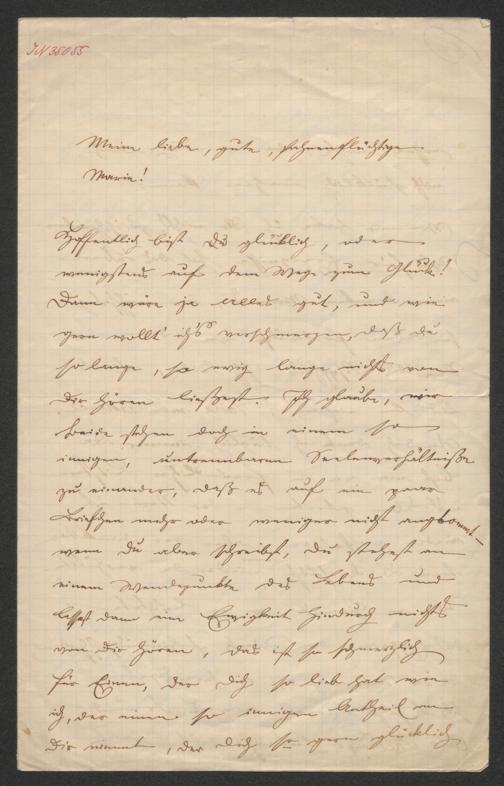 JN 35055
Meine liebe, gute, fahnenflüchtige
Marie!
Hoffentlich bist Du glücklich, oder
wenigstens auf dem Wege zum Glück!
Dann wäre ja alles gut, und wie
gern wollt' ich's verschmerzen, daß du
so lange, so ewig lange nichts von
Dir hören ließest. Ich glaube, wir
beide stehen doch in einem so
innigen, untrennbaren Seelenverhältniße
zu einander, daß es auf ein paar
Briefchen mehr oder weniger nicht ankommt –
wenn Du aber schreibst, Du stehest an
einem Wendepunkte des Lebens und
lässt dann eine Ewigkeit hindurch nichts
von Dir hören, das ist so schmerzlich
für Einen, der Dich so lieb hat wie
ich, der einen so innigen Antheil an
Dir nimmt, der Dich so gern glücklich